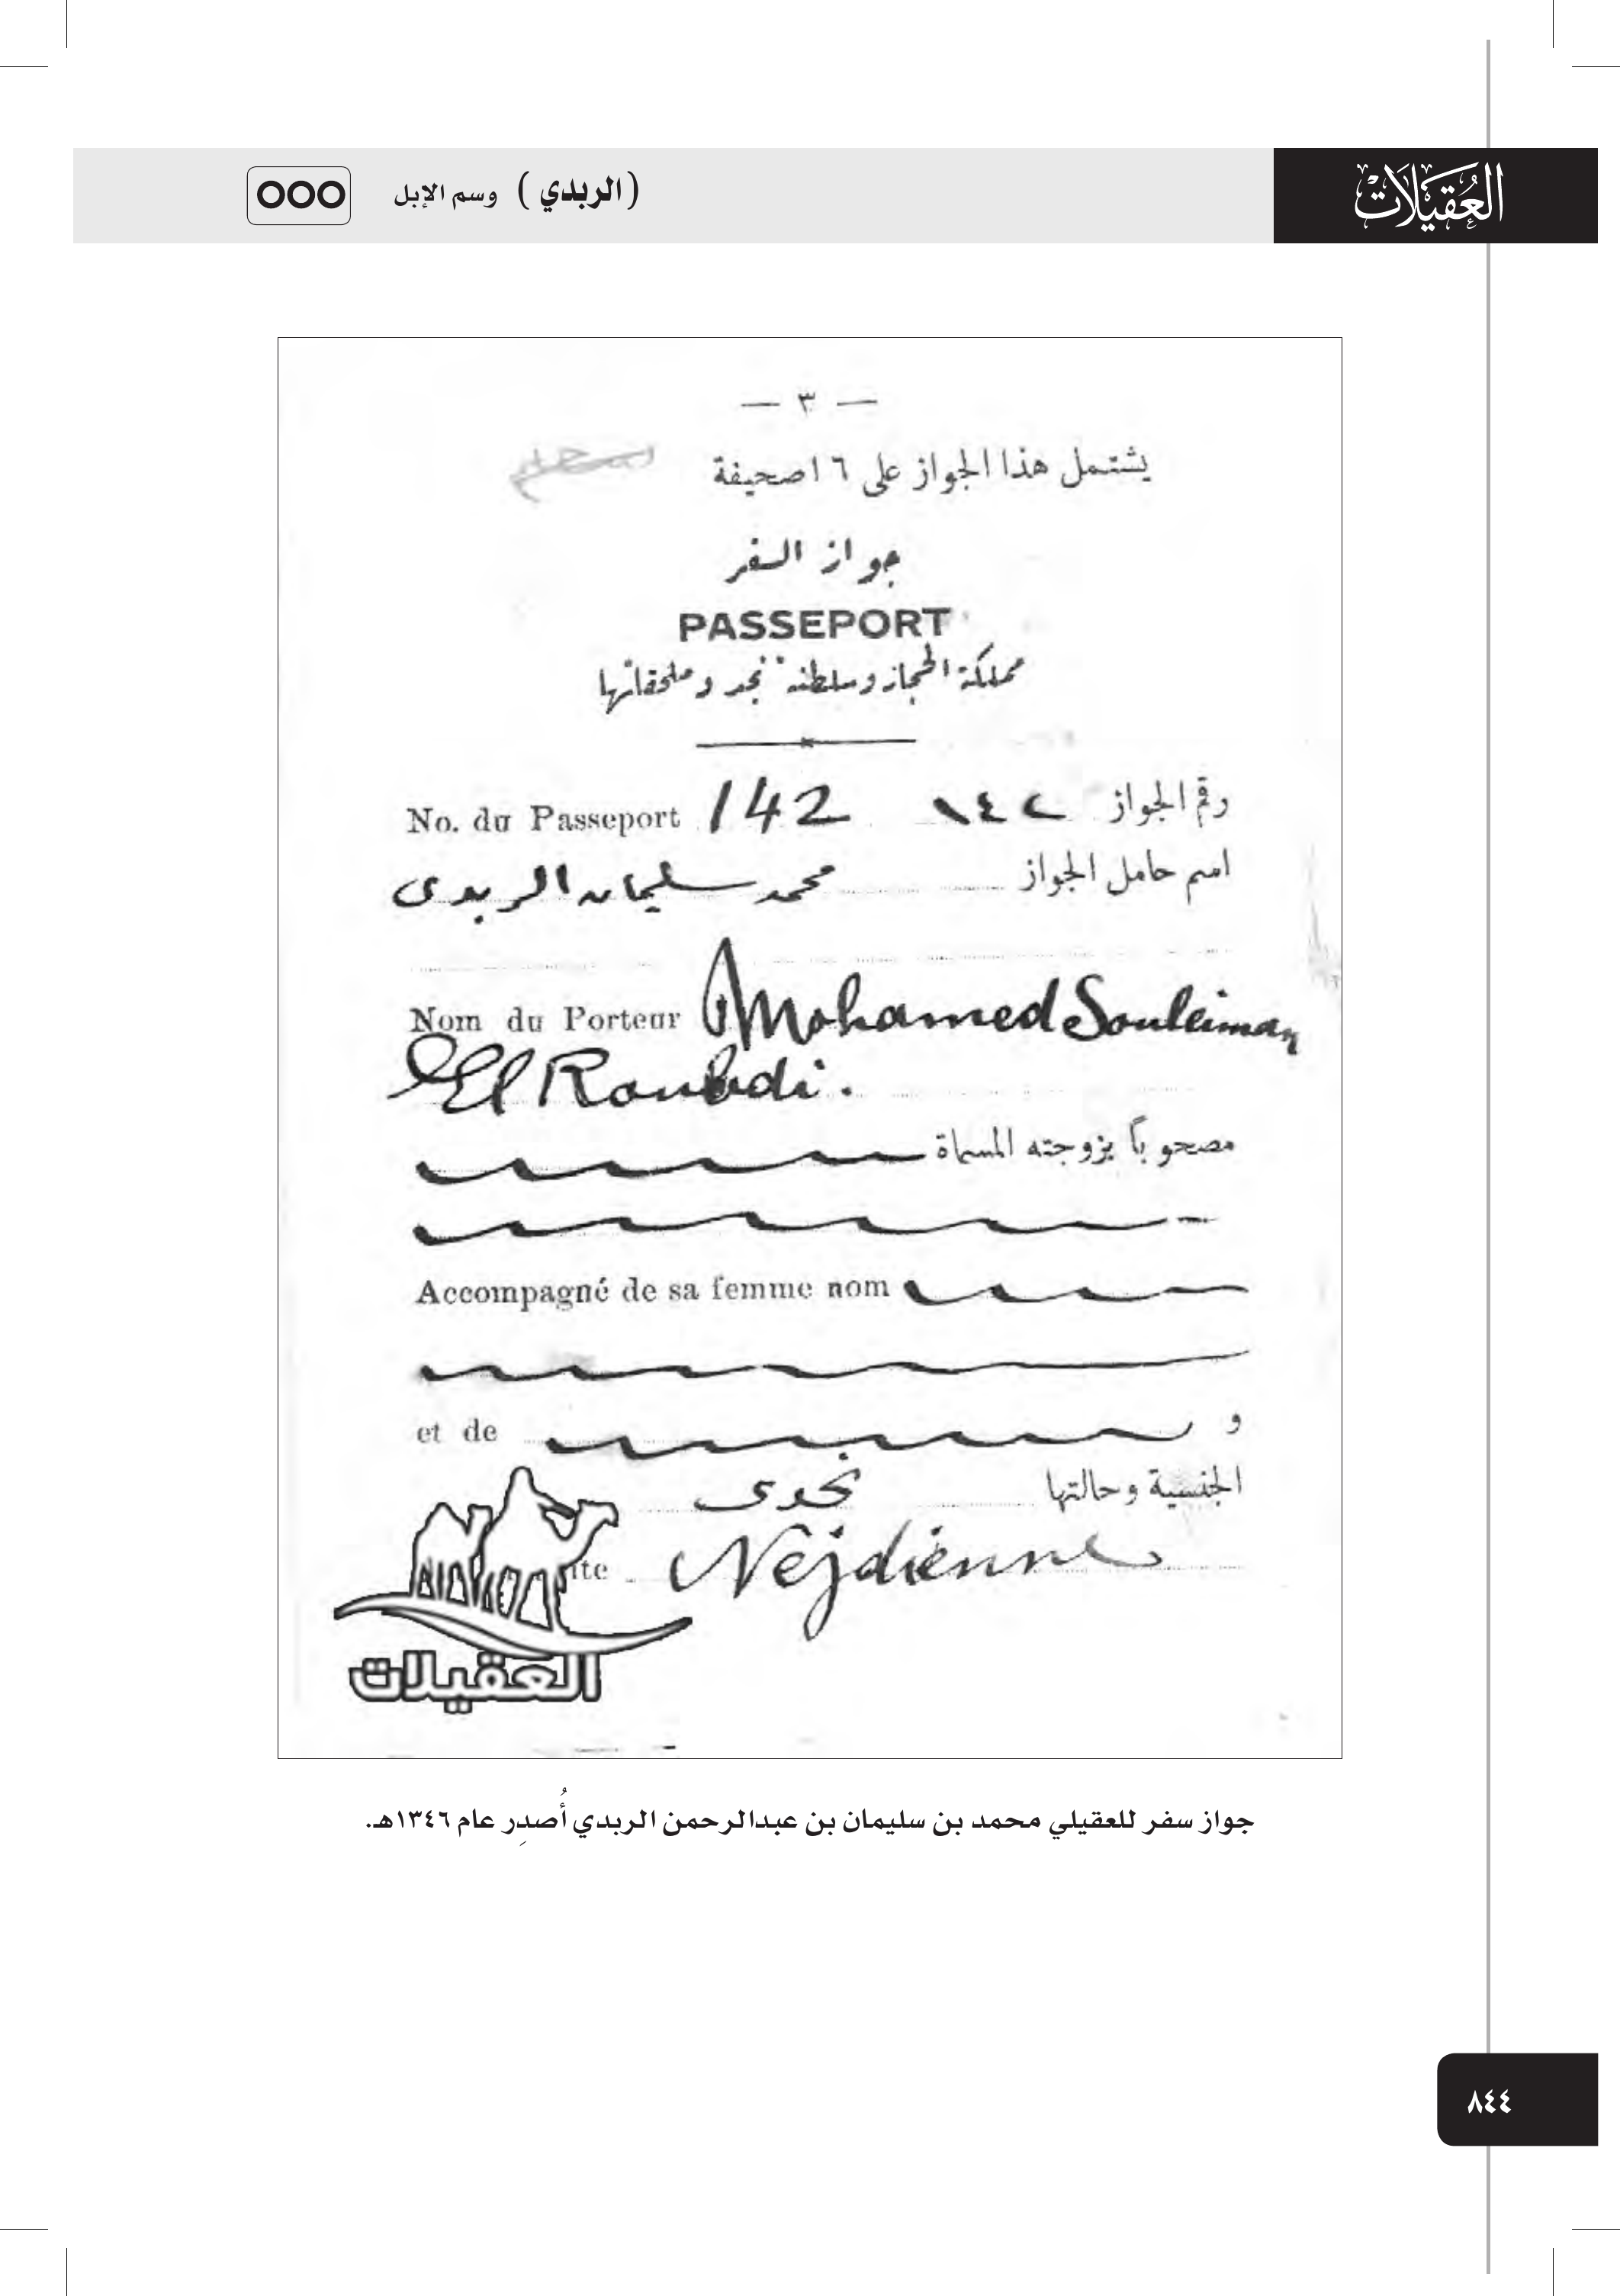 العُقَيْلَاتْ
(الربدي) وسم الإبل
— ٣ —
يشتمل هذا الجواز على ١٦ صحيفة
جواز السفر
PASSEPORT
مملكة الحجاز وسلطنة نجد وملحقاتها
رقم الجواز ١٤٢
No. du Passeport 142
اسم حامل الجواز محمد سليمان الربدى
Nom du Porteur Mohamed Souleiman
El Roubdi.
مصحوباً بزوجته المسماة
Accompagné de sa femme nom
et de و
الجنسية وحالتها نجدى
ité Nejdienne
العقيلات
جواز سفر للعقيلي محمد بن سليمان بن عبدالرحمن الربدي أُصدِر عام ١٣٤٦هـ.
٨٤٤